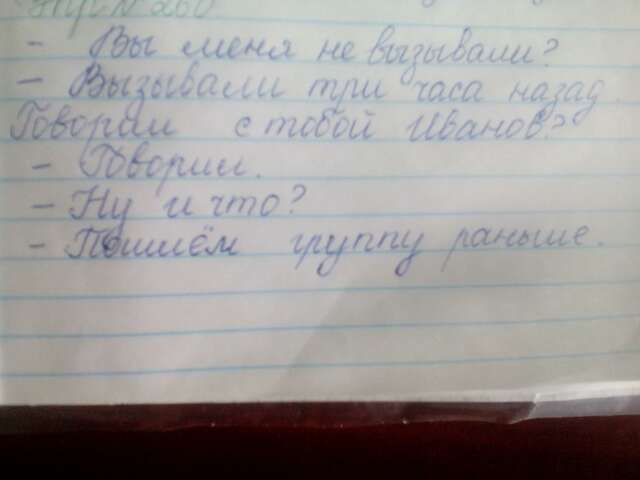 Упр№260.
- Вы меня не вызывали?
- Вызывали три часа назад.
Говорил с тобой Иванов?
- Говорил.
- Ну и что?
- Пошлём группу раньше.